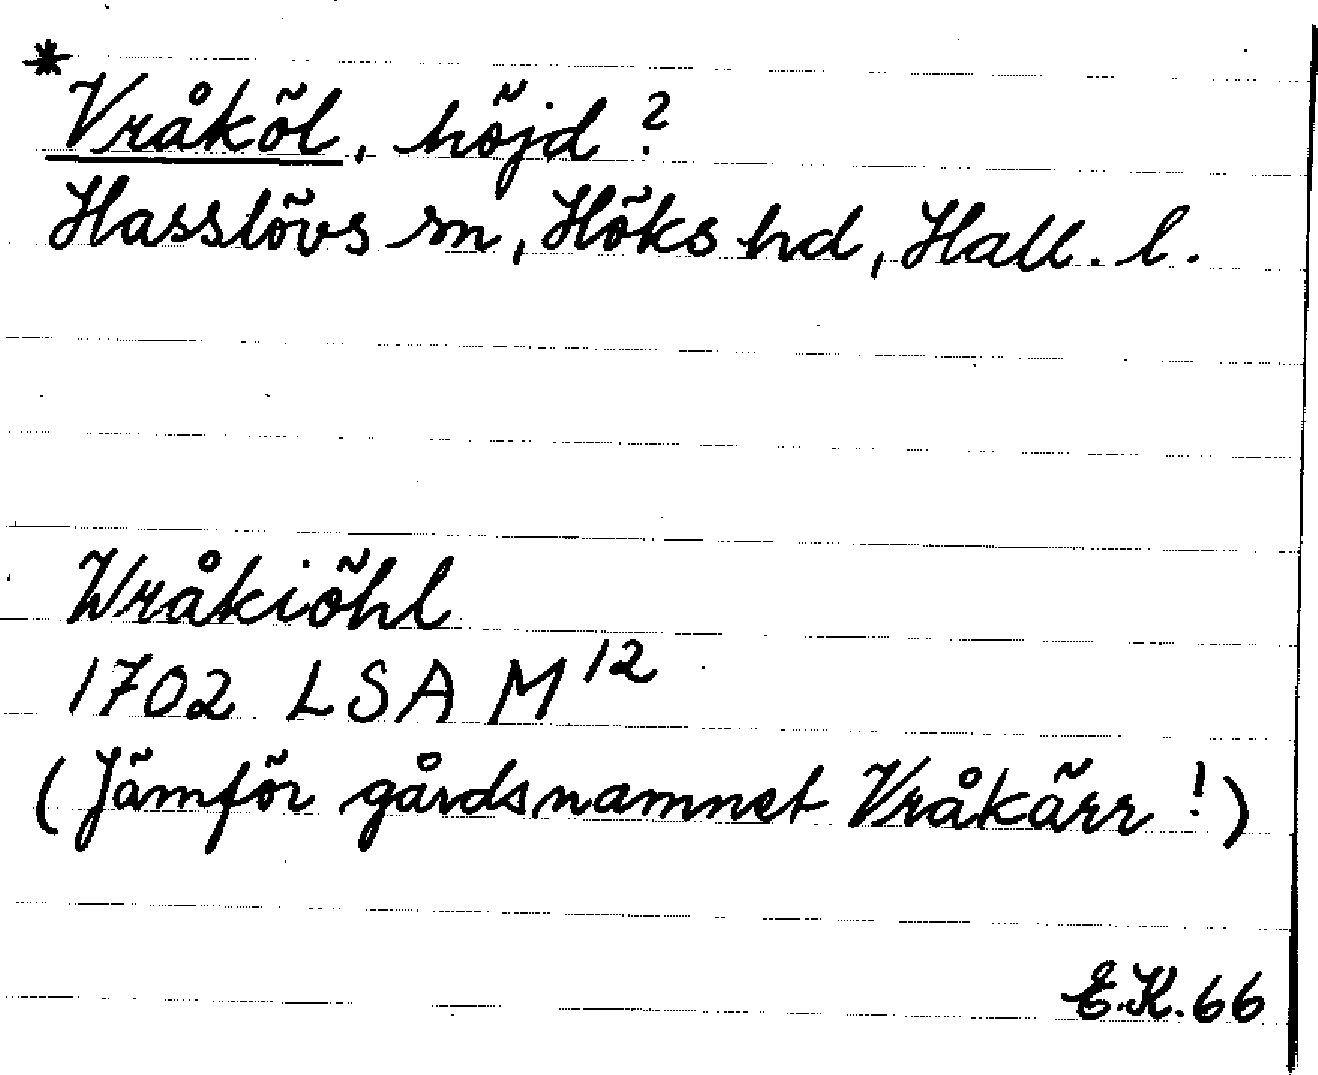 *
Vråköl, höjd?
Hasslövs sn, Höks hd, Hall. l.
Wråkiöhl
1702 LSA M12
(Jämför gårdsnamnet Vråkärr!)
E.K. 66